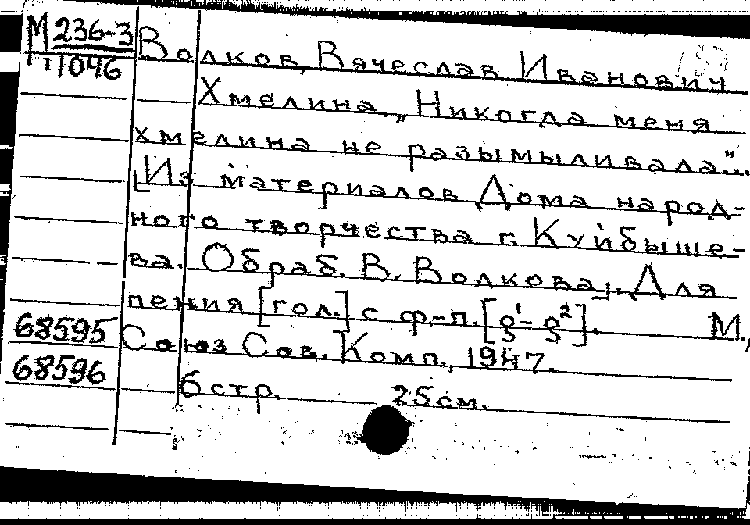 М 236-3
11046
Волков, Вячеслав Иванович
Хмелина „Никогда меня
хмелина не разымыливала"...
[Из материалов Дома народ-
ного творчества г. Куйбыше-
ва. Обраб. В. Волкова]. Для
пения [гол.] с ф-п. [g¹-g²]. М.,
68595 Союз Сов. Комп., 1947.
68596
6 стр. 25 см.